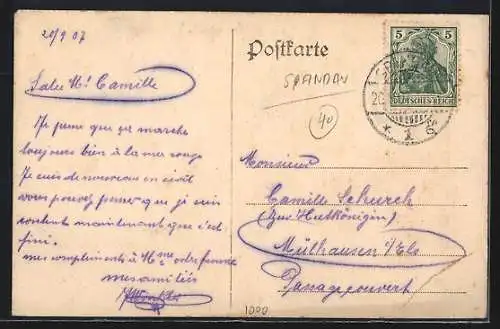 20/9 07
Salu Mr Camille
Je pense que ça marche
toujours bien à la mer rouge
Je suis de nouveau en civil
vous pouvez penser que je suis
content maintenant que c'est
fini.
mes compliments à Mme votre femme
mes amitiés
Postkarte
SPANDAU
40
5 5
DEUTSCHES REICH
* 1
Monsieur
Camille Schurch
(zur Hutkönigin)
Mülhausen i/Els
Passage couvert
1000